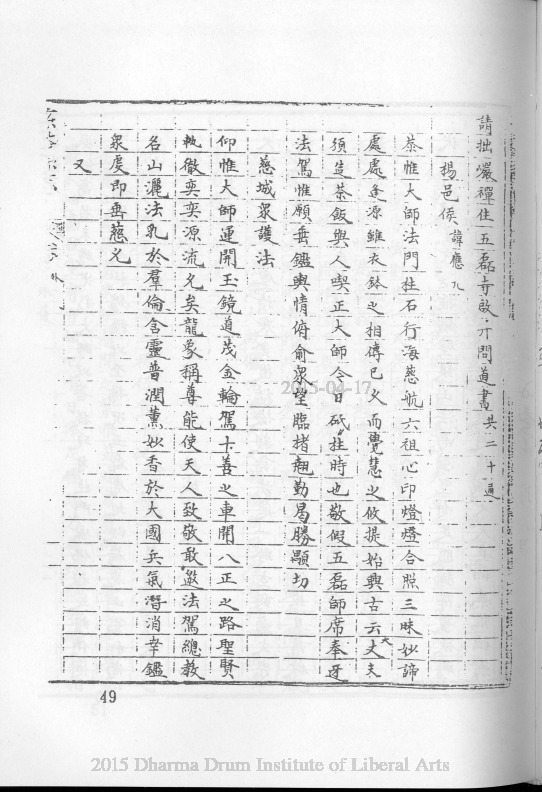 請拙巖禪住五磊寺啟并問道書共二十通
楊邑侯諱應
恭惟大師法門柱石行海慈航六祖心印燈燈合照三昧妙諦
處處逢源雖衣鉢之相傳已久而覺慧之攸提始興古云大丈夫
須造茶飯與人喫正大師今日砥柱時也敬假五磊師席奉迓
法駕惟願垂鑑輿情俯俞眾望臨楮翹勤曷勝顒切
慈城眾護法
仰惟大師運開玉鏡道茂金輪駕十善之車開八正之路聖賢
執徹奕奕源流允矣龍象稱尊能使天人致敬敢邀法駕總教
名山灑法乳於羣倫含靈普潤薰妙香於大國兵氣潛消幸鑑
眾虔即垂慈允
又
49
2015-04-17
2015 Dharma Drum Institute of Liberal Arts